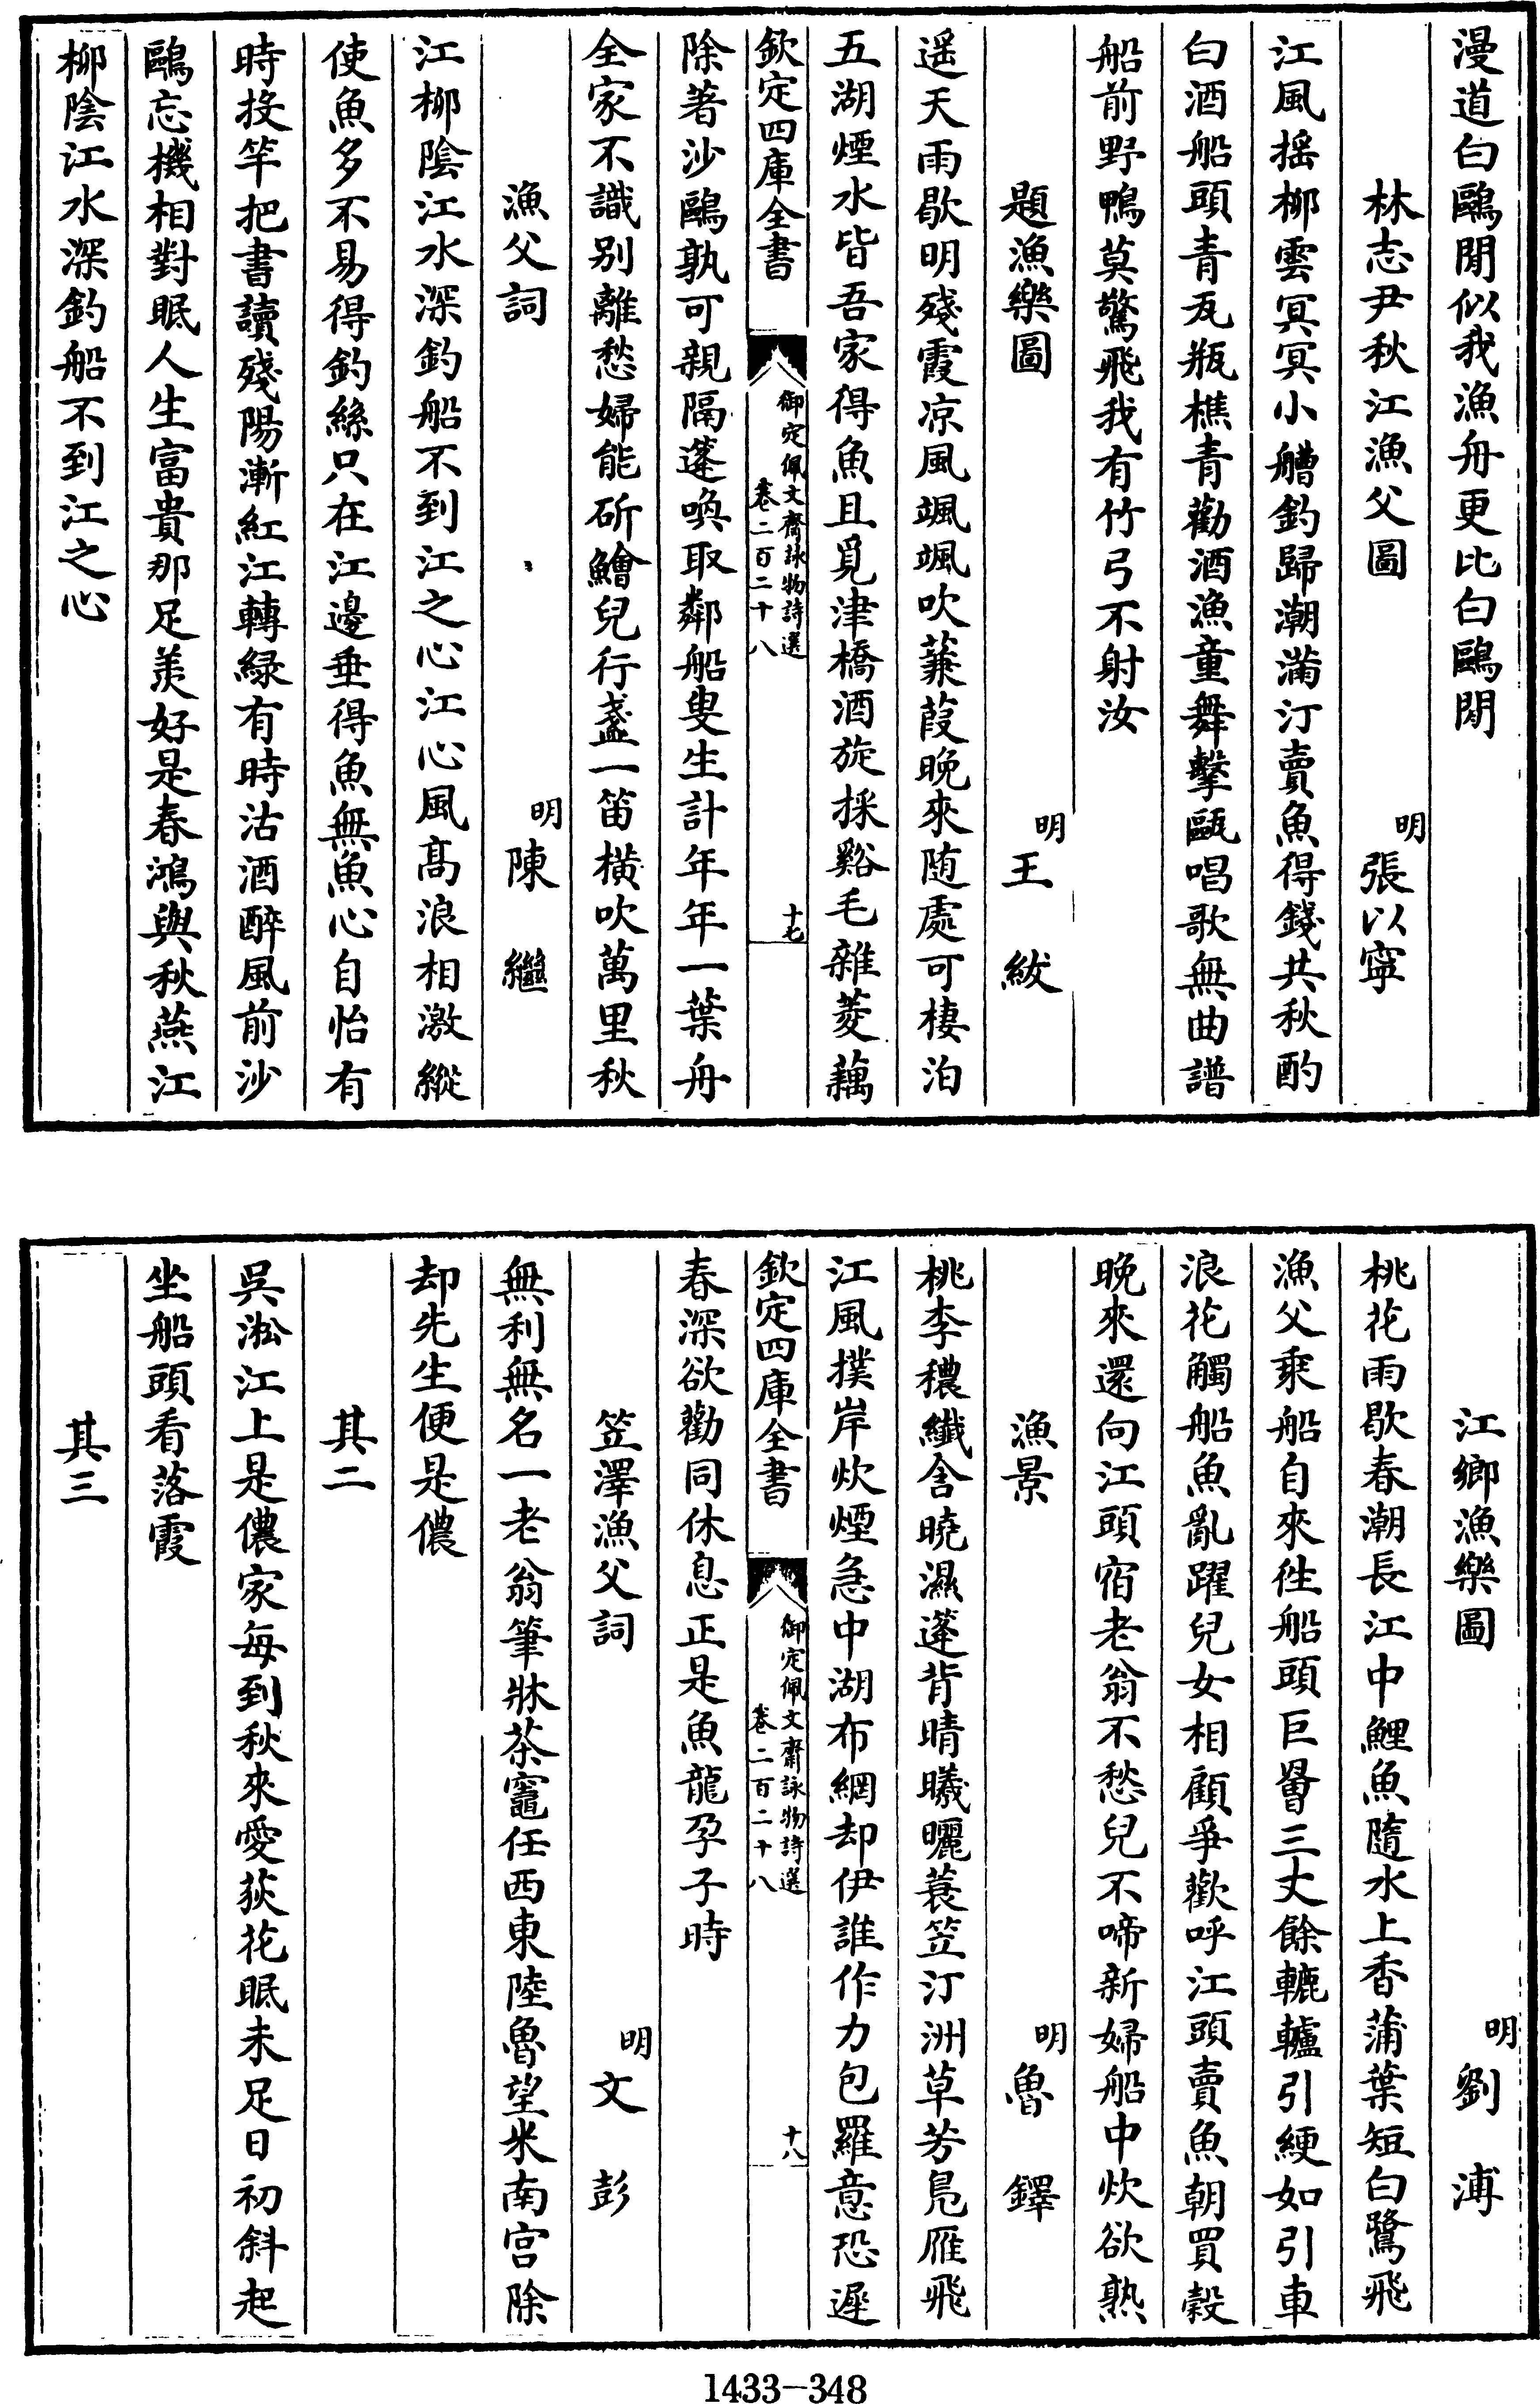 漫道白鷗閒似我漁舟更比白鷗閒
林志尹秋江漁父圖 明張以寧
江風摇柳雲冥冥小艚釣歸潮滿汀賣魚得錢共秋酌
白酒船頭青瓦瓶樵青勸酒漁童舞擊甌唱歌無曲譜
船前野鴨莫驚飛我有竹弓不射汝
題漁樂圖 明王紱
遥天雨歇明殘霞凉風颯颯吹蒹葭晚來随處可棲泊
五湖煙水皆吾家得魚且覓津橋酒旋採谿毛雜菱藕
欽定四庫全書 御定佩文齋詠物詩選 卷二百二十八 十七
除著沙鷗孰可親隔蓬喚取鄰船叟生計年年一葉舟
全家不識别離愁婦能斫鱠兒行盞一笛横吹萬里秋
漁父詞 明陳繼
江柳陰江水深釣船不到江之心江心風髙浪相激縱
使魚多不易得釣絲只在江邊垂得魚無魚心自怡有
時投竿把書讀殘陽漸紅江轉緑有時沽酒醉風前沙
鷗忘機相對眠人生富貴那足羨好是春鴻與秋燕江
柳陰江水深釣船不到江之心
江鄉漁樂圖 明劉溥
桃花雨歇春潮長江中鯉魚隨水上香蒲葉短白鷺飛
漁父乘船自來往船頭巨罾三丈餘轆轤引綆如引車
浪花觸船魚亂躍兒女相顧爭歡呼江頭賣魚朝買穀
晚來還向江頭宿老翁不愁兒不啼新婦船中炊欲熟
漁景 明魯鐸
桃李穠纎含曉濕蓬背晴曦曬蓑笠汀洲草芳鳬雁飛
江風撲岸炊煙急中湖布網却伊誰作力包羅意恐遲
欽定四庫全書 御定佩文齋詠物詩選 卷二百二十八 十八
春深欲勸同休息正是魚龍孕子時
笠澤漁父詞 明文彭
無利無名一老翁筆牀茶竈任西東陸魯望米南宫除
却先生便是儂
其二
吳淞江上是儂家每到秋來愛荻花眠未足日初斜起
坐船頭看落霞
其三
1433-348